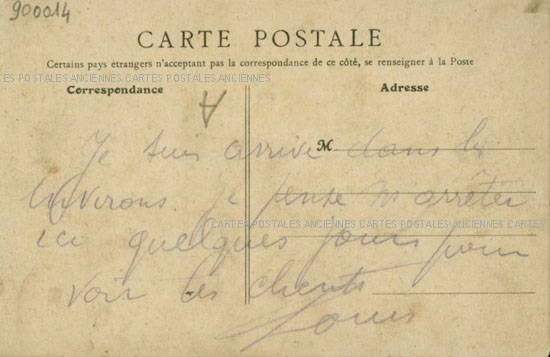 900014
CARTE POSTALE
Certains pays étrangers n'acceptent pas la correspondance de ce côté, se renseigner à la Poste
CARTES POSTALES ANCIENNES CARTES POSTALES ANCIENNES
Correspondance
Adresse
M
Je suis arrivé dans les
environs je pense m'arrêter
CARTES POSTALES ANCIENNES CARTES POSTALES ANCIENNES CARTES
ici quelques jours pour
voir les clients
Louis